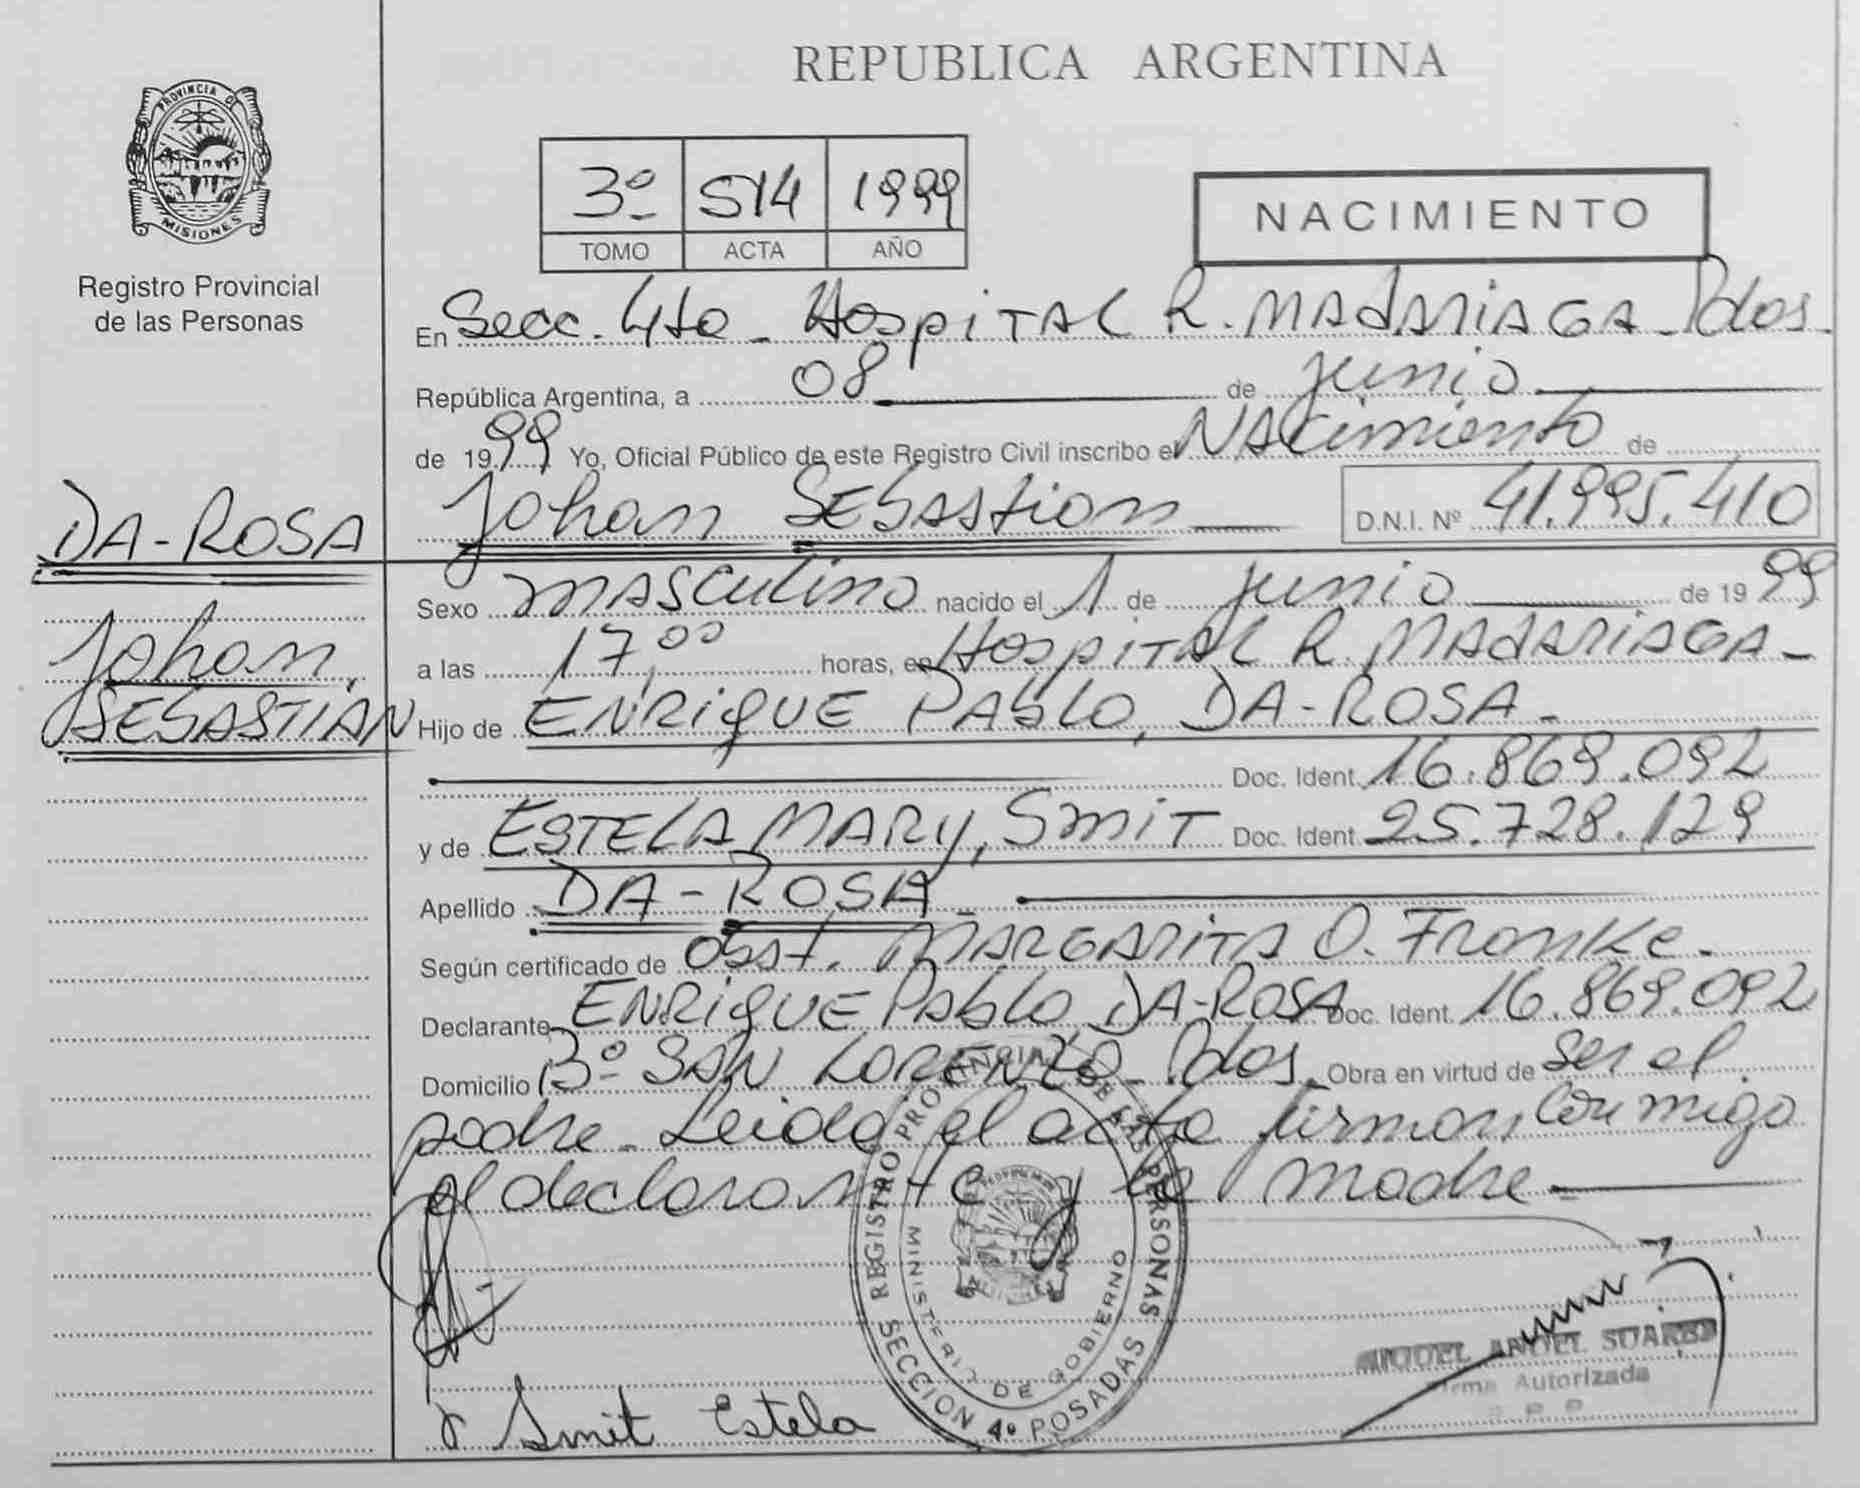 REPUBLICA ARGENTINA
PROVINCIA DE MISIONES
Registro Provincial
de las Personas
3º 514 1999
TOMO ACTA AÑO
NACIMIENTO
En Secc. 4ta - Hospital R. MADARIAGA - Pdas.
República Argentina, a 08 de junio
de 1999 Yo, Oficial Público de este Registro Civil inscribo el NAcimiento de
DA-ROSA
Johan SEBAStian D.N.I. Nº 41.995.410
Johan,
SEBASTIAN
Sexo mASculino nacido el 1 de junio de 1999
a las 17,00 horas, en HospiTAL R. MADARIAGA -
Hijo de ENRiQUE PAbLO, DA-ROSA -
Doc. Ident. 16.869.092
y de ESTELA MARY, SmiT Doc. Ident. 25.728.129
Apellido DA-ROSA -
Según certificado de Obst. MARGARITA O. Franke -
Declarante ENRiQUE PAbLO DA-ROSA Doc. Ident. 16.869.092
Domicilio Bº SAN LORENZO - Pdas. Obra en virtud de ser el
padre - Leida el acta firman conmigo
el declarante y la madre
REGISTRO PROVINCIAL DE LAS PERSONAS
MINISTERIO DE GOBIERNO
SECCION 4º POSADAS
MIGUEL ANGEL SUAREZ
Firma Autorizada
Smit Estela